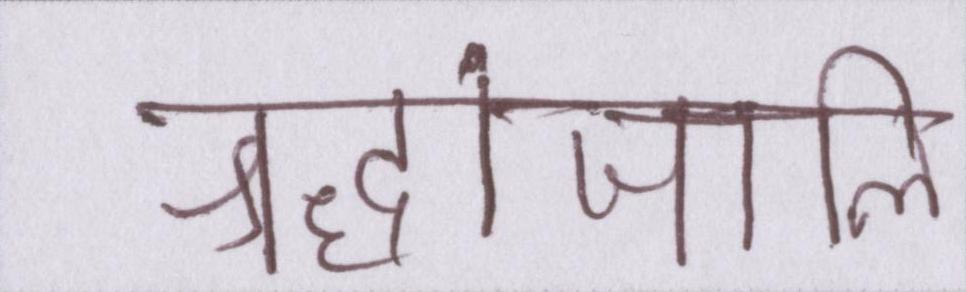 श्रद्धांजालि